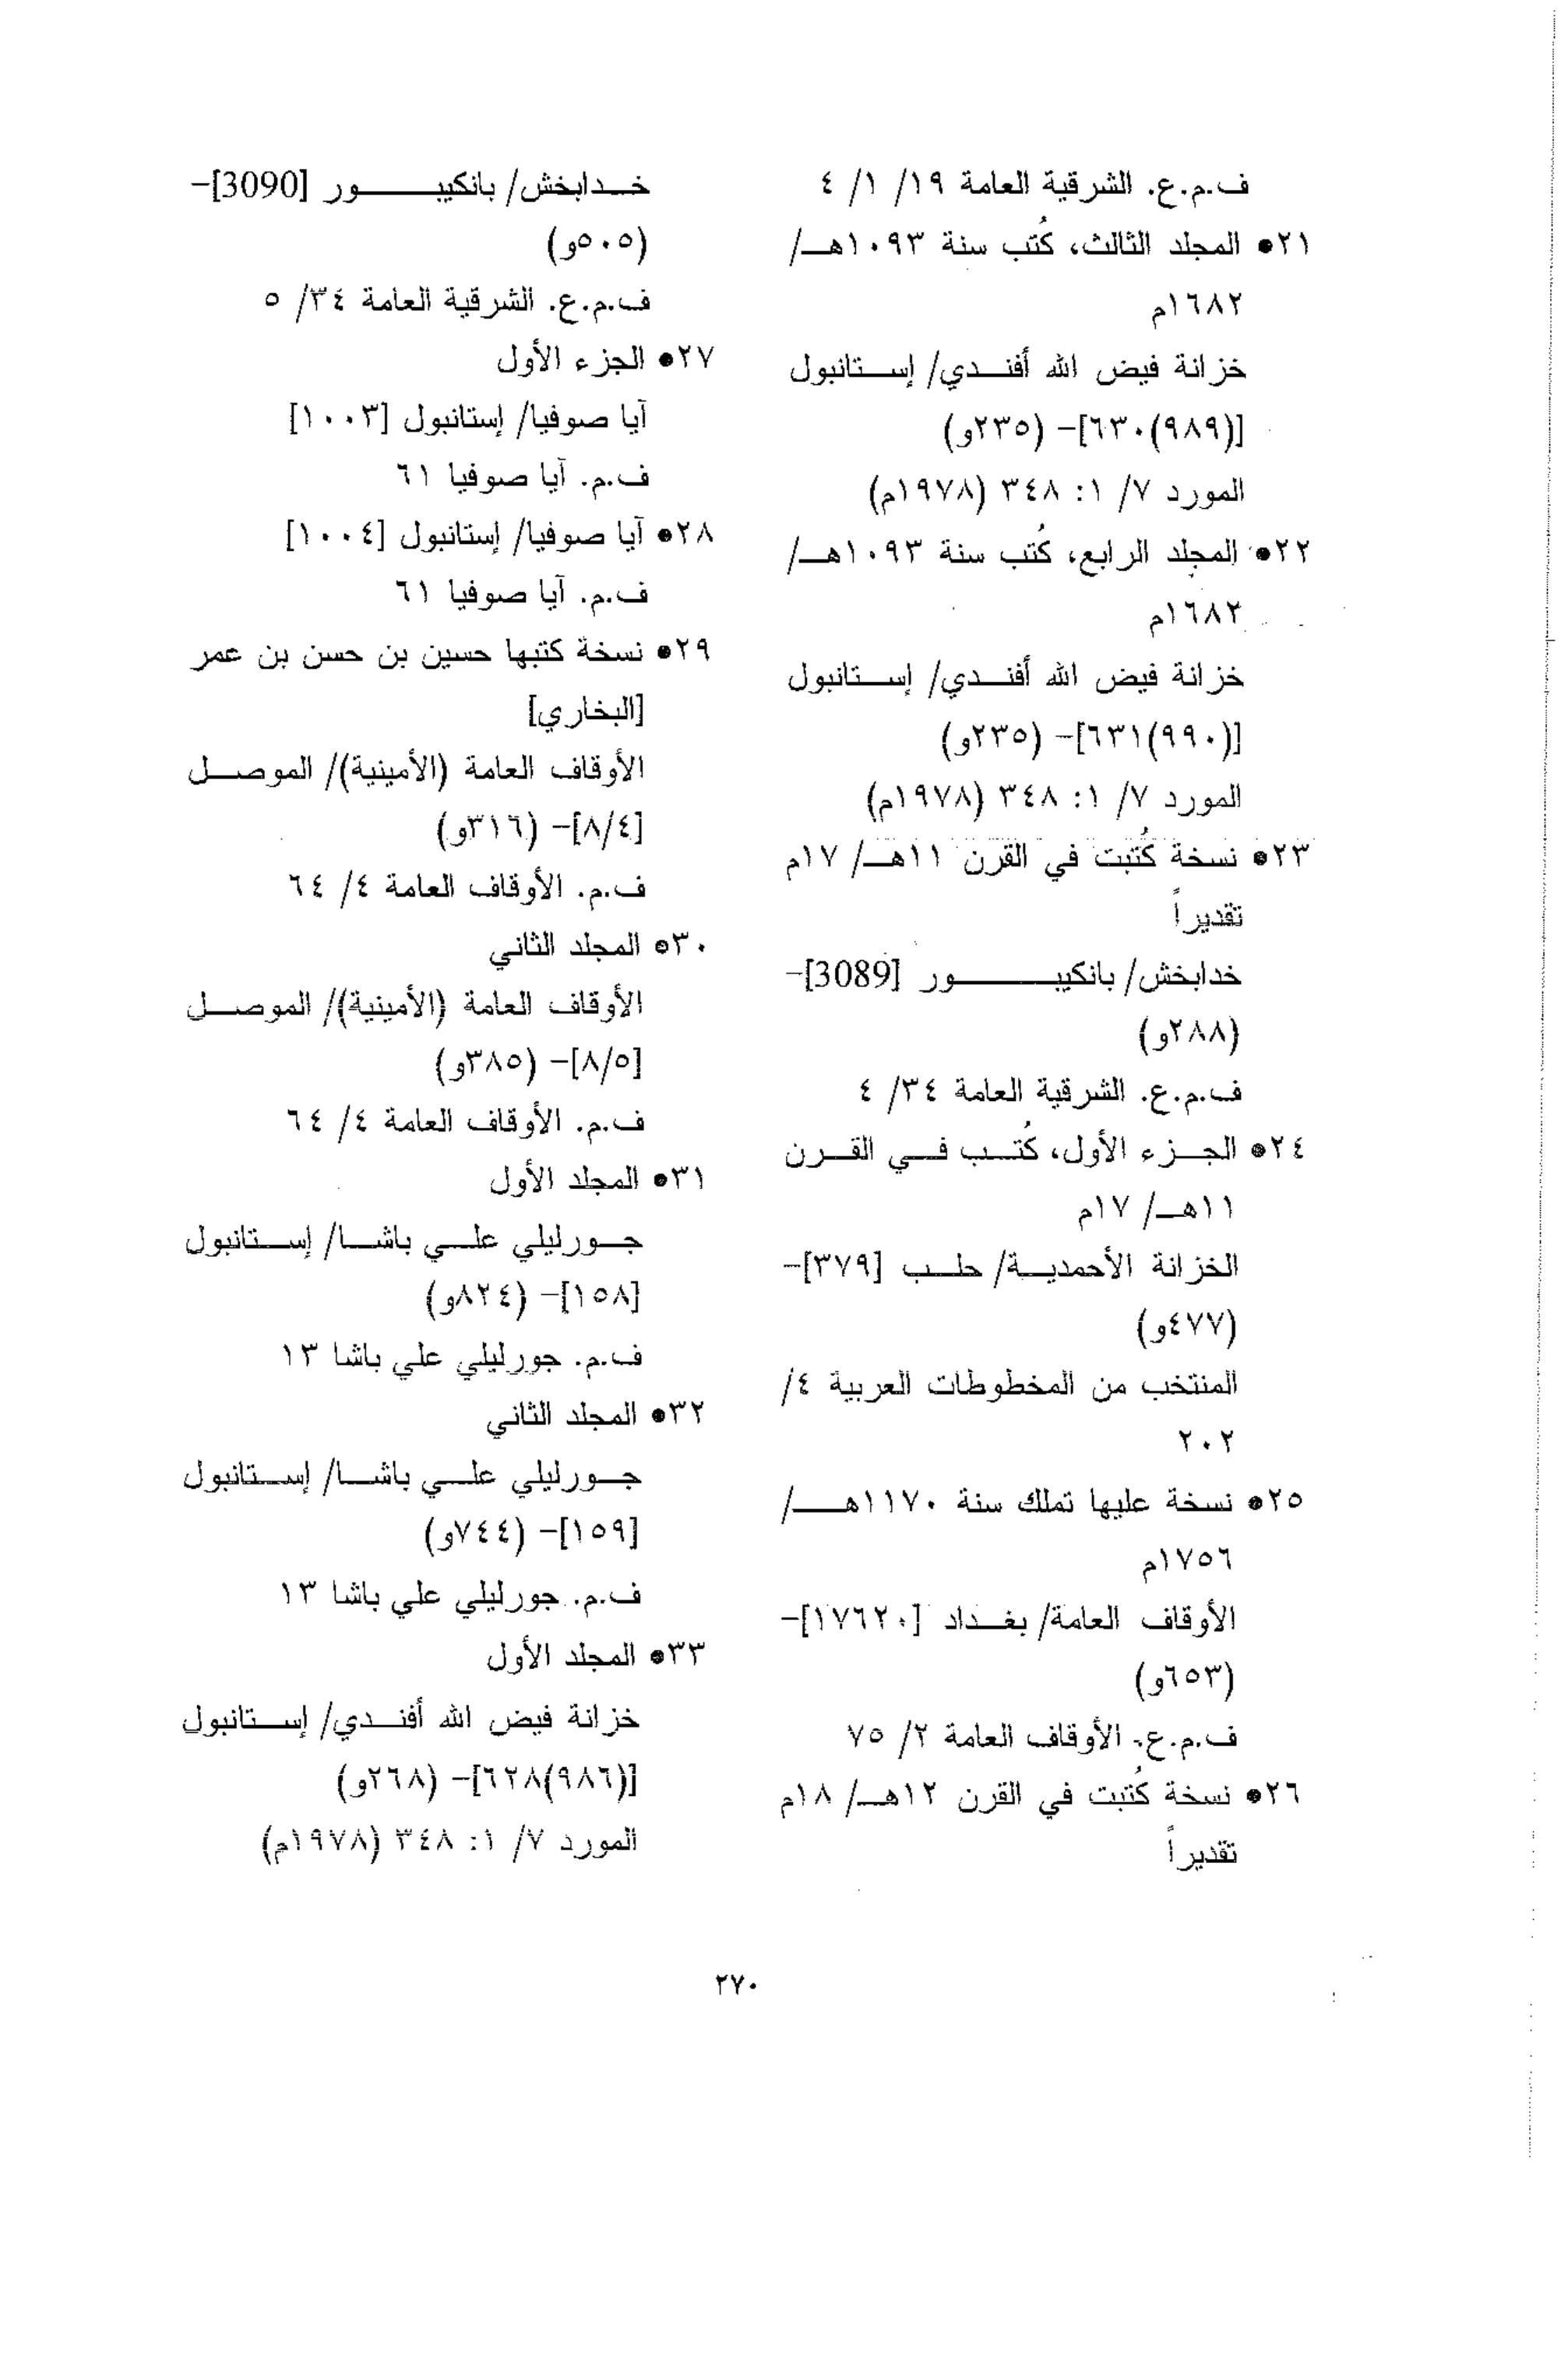 ف.م.ع. الشرقية العامة ١٩/ ١/ ٤
٢١• المجلد الثالث، كُتب سنة ١٠٩٣هـ/
١٦٨٢م
خزانة فيض الله أفندي/ إستانبول
[(٩٨٩)٦٣٠]- (٢٣٥و)
المورد ٧/ ١: ٣٤٨ (١٩٧٨م)
٢٢• المجلد الرابع، كُتب سنة ١٠٩٣هـ/
١٦٨٢م
خزانة فيض الله أفندي/ إستانبول
[(٩٩٠)٦٣١]- (٢٣٥و)
المورد ٧/ ١: ٣٤٨ (١٩٧٨م)
٢٣• نسخة كُتبت في القرن ١١هـ/ ١٧م
تقديراً
خدابخش/ بانكيبور [3089]-
(٢٨٨و)
ف.م.ع. الشرقية العامة ٣٤/ ٤
٢٤• الجزء الأول، كُتب في القرن
١١هـ/ ١٧م
الخزانة الأحمدية/ حلب [٣٧٩]-
(٤٧٧و)
المنتخب من المخطوطات العربية ٤/
٢٠٢
٢٥• نسخة عليها تملك سنة ١١٧٠هـ/
١٧٥٦م
الأوقاف العامة/ بغداد [١٧٦٢٠]-
(٦٥٣و)
ف.م.ع. الأوقاف العامة ٢/ ٧٥
٢٦• نسخة كُتبت في القرن ١٢هـ/ ١٨م
تقديراً
خدابخش/ بانكيبور [3090]-
(٥٠٥و)
ف.م.ع. الشرقية العامة ٣٤/ ٥
٢٧• الجزء الأول
آيا صوفيا/ إستانبول [١٠٠٣]
ف.م. آيا صوفيا ٦١
٢٨• آيا صوفيا/ إستانبول [١٠٠٤]
ف.م. آيا صوفيا ٦١
٢٩• نسخة كتبها حسين بن حسن بن عمر
[البخاري]
الأوقاف العامة (الأمينية)/ الموصل
[٨/٤]- (٣١٦و)
ف.م. الأوقاف العامة ٤/ ٦٤
٣٠• المجلد الثاني
الأوقاف العامة (الأمينية)/ الموصل
[٨/٥]- (٣٨٥و)
ف.م. الأوقاف العامة ٤/ ٦٤
٣١• المجلد الأول
جورليلي علي باشا/ إستانبول
[١٥٨]- (٨٢٤و)
ف.م. جورليلي علي باشا ١٣
٣٢• المجلد الثاني
جورليلي علي باشا/ إستانبول
[١٥٩]- (٧٤٤و)
ف.م. جورليلي علي باشا ١٣
٣٣• المجلد الأول
خزانة فيض الله أفندي/ إستانبول
[(٩٨٦)٦٢٨]- (٢٦٨و)
المورد ٧/ ١: ٣٤٨ (١٩٧٨م)
٢٧٠